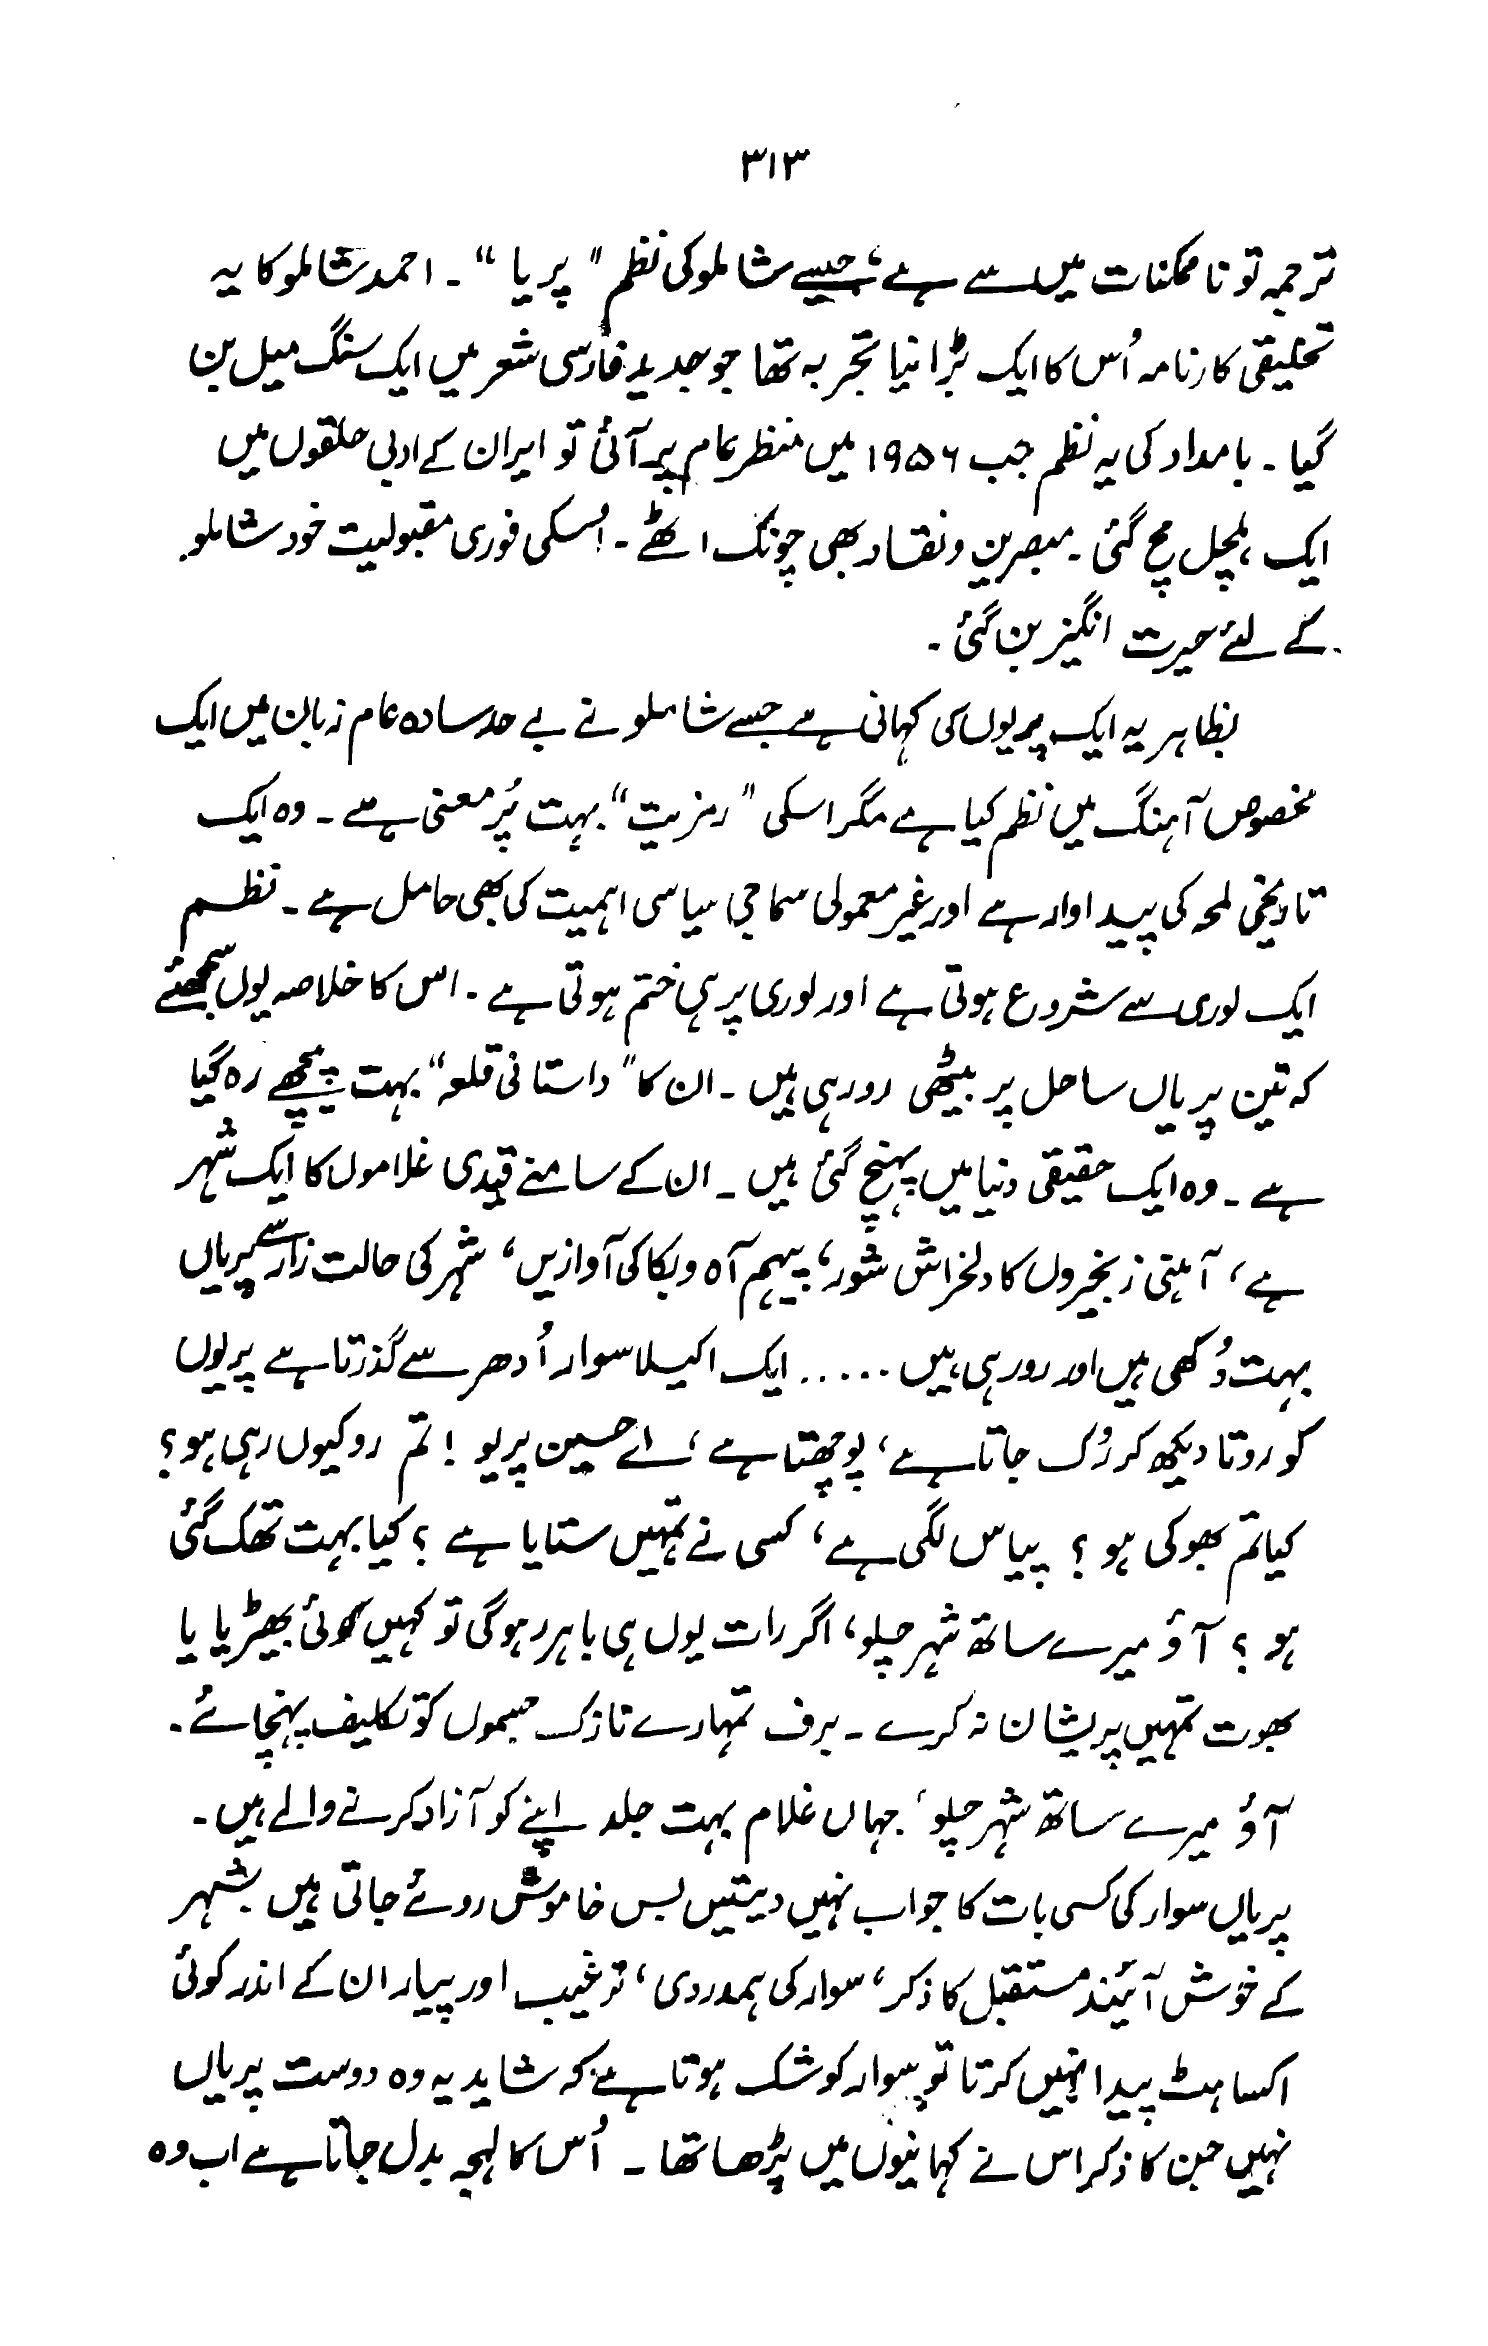 ۳۱۳
ترجمہ تو ناممکنات میں سے ہے، جیسے شاملو کی نظم "پریا"۔ احمد شاملو کا یہ
تخلیقی کارنامہ اُس کا ایک بڑا نیا تجربہ تھا جو جدید فارسی شعر میں ایک سنگ میل بن
گیا۔ بامداد کی یہ نظم جب ۱۹۵۶ میں منظر عام پر آئی تو ایران کے ادبی حلقوں میں
ایک ہلچل مچ گئی۔ مبصرین و نقاد بھی چونک اٹھے۔ اُسکی فوری مقبولیت خود شاملو
کے لئے حیرت انگیز بن گئی۔
بظاہر یہ ایک پریوں کی کہانی ہے جسے شاملو نے بے حد سادہ عام زبان میں ایک
مخصوص آہنگ میں نظم کیا ہے مگر اسکی "رمزیت" بہت پُر معنی ہے۔ وہ ایک
تاریخی لمحہ کی پیداوار ہے اور غیر معمولی سماجی سیاسی اہمیت کی بھی حامل ہے۔ نظم
ایک لوری سے شروع ہوتی ہے اور لوری پر ہی ختم ہوتی ہے۔ اس کا خلاصہ یوں سمجھئے
کہ تین پریاں ساحل پر بیٹھی رو رہی ہیں۔ ان کا "داستانی قلعہ" بہت پیچھے رہ گیا
ہے۔ وہ ایک حقیقی دنیا میں پہنچ گئی ہیں۔ ان کے سامنے قیدی غلاموں کا ایک شہر
ہے، آہنی زنجیروں کا دلخراش شور، پیہم آہ و بکا کی آوازیں، شہر کی حالت زار سے پریاں
بہت دُکھی ہیں اور رو رہی ہیں ..... ایک اکیلا سوار اُدھر سے گذرتا ہے پریوں
کو روتا دیکھ کر رُک جاتا ہے، پوچھتا ہے، اے حسین پریو! تم رو کیوں رہی ہو؟
کیا تم بھوکی ہو؟ پیاس لگی ہے، کسی نے تمہیں ستایا ہے؟ کیا بہت تھک گئی
ہو؟ آؤ میرے ساتھ شہر چلو، اگر رات یوں ہی باہر رہو گی تو کہیں کوئی بھیڑیا یا
بھوت تمہیں پریشان نہ کرے۔ برف تمہارے نازک جسموں کو تکلیف پہنچائے۔
آؤ میرے ساتھ شہر چلو، جہاں غلام بہت جلد اپنے کو آزاد کرنے والے ہیں۔
پریاں سوار کی کسی بات کا جواب نہیں دیتیں بس خاموش روئے جاتی ہیں۔ شہر
کے خوش آئیند مستقبل کا ذکر، سوار کی ہمدردی، ترغیب اور پیار ان کے اندر کوئی
اکساہٹ پیدا نہیں کرتا تو سوار کو شک ہوتا ہے کہ شاید یہ وہ دوست پریاں
نہیں جن کا ذکر اس نے کہانیوں میں پڑھا تھا۔ اُس کا لہجہ بدل جاتا ہے اب وہ